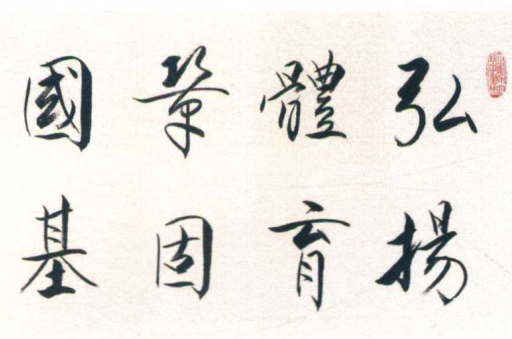 弘揚
體育
鞏固
國基